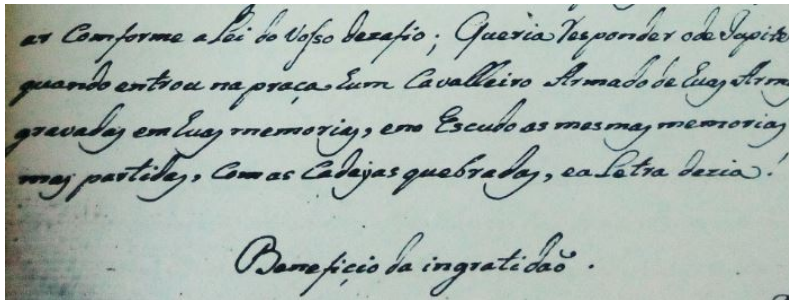 ar Comforme a Lei do Vosso dezafio ; Queria Responder o de Jupite
quando entrou na praça hum Cavalleiro Armado de huas Arm
gravadas em huas memorias, eno Escudo as mesmas memorias
mas partidas, Com as Cadejas quebradas, ea Letra dezia !
Beneficio da ingratidaõ .